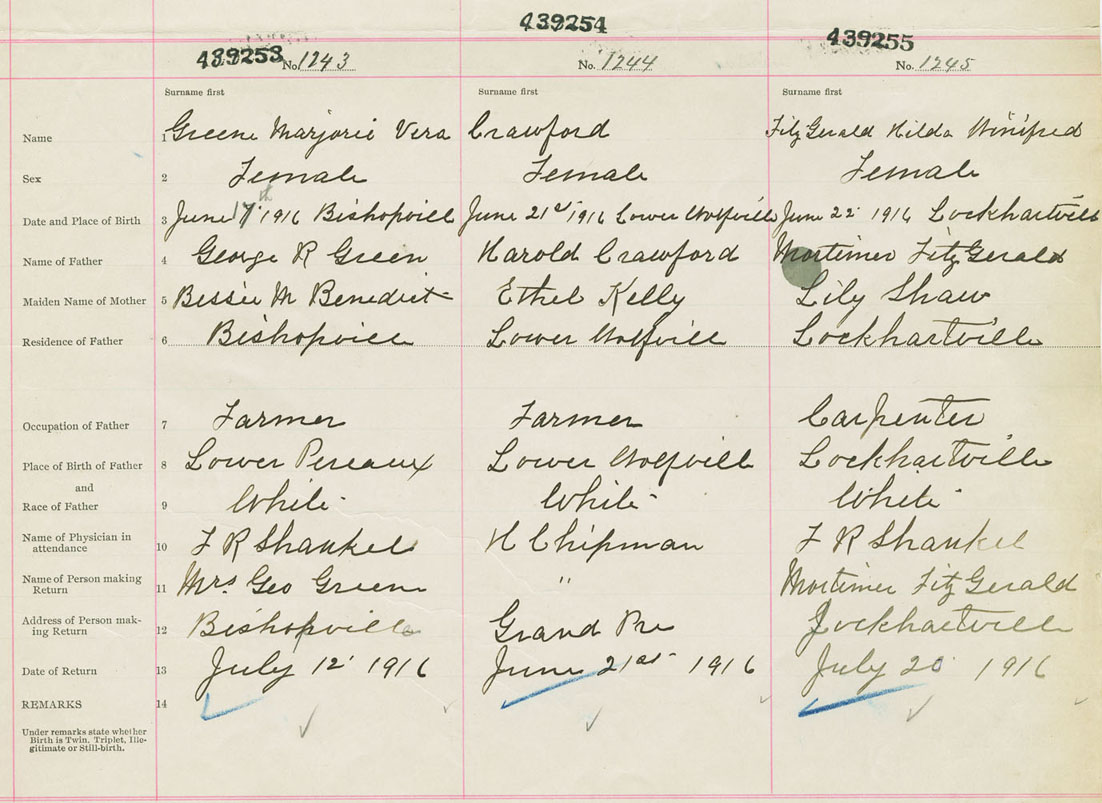 439253 439254 439255
No. 1243 No. 1244 No. 1245
Surname first Surname first Surname first
Name 1 Greene Marjorie Vera Crawford FitzGerald Hilda Winifred
Sex 2 Female Female Female
Date and Place of Birth 3 June 17th 1916 Bishopville June 21st 1916 Lower Wolfville June 22 1916 Lockhartville
Name of Father 4 George R Green Harold Crawford Mortimer FitzGerald
Maiden Name of Mother 5 Bessie M Benedict Ethel Kelly Lily Shaw
Residence of Father 6 Bishopville Lower Wolfville Lockhartville
Occupation of Father 7 Farmer Farmer Carpenter
Place of Birth of Father 8 Lower Pereaux Lower Wolfville Lockhartville
and
Race of Father 9 White White White
Name of Physician in
attendance 10 F R Shankel H Chipman F R Shankel
Name of Person making
Return 11 Mrs. Geo Green " Mortimer FitzGerald
Address of Person mak-
ing Return 12 Bishopville Grand Pre Lockhartville
Date of Return 13 July 12 1916 June 21st 1916 July 20 1916
REMARKS 14
Under remarks state whether
Birth is Twin, Triplet, Ille-
gitimate or Still-birth.